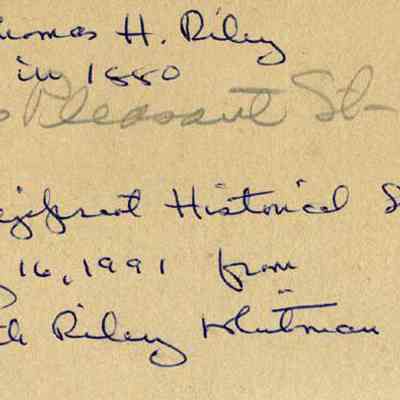 Thomas H. Riley
in 1880
Pleasant St-
Historical S
16, 1991 from
Riley Whitman